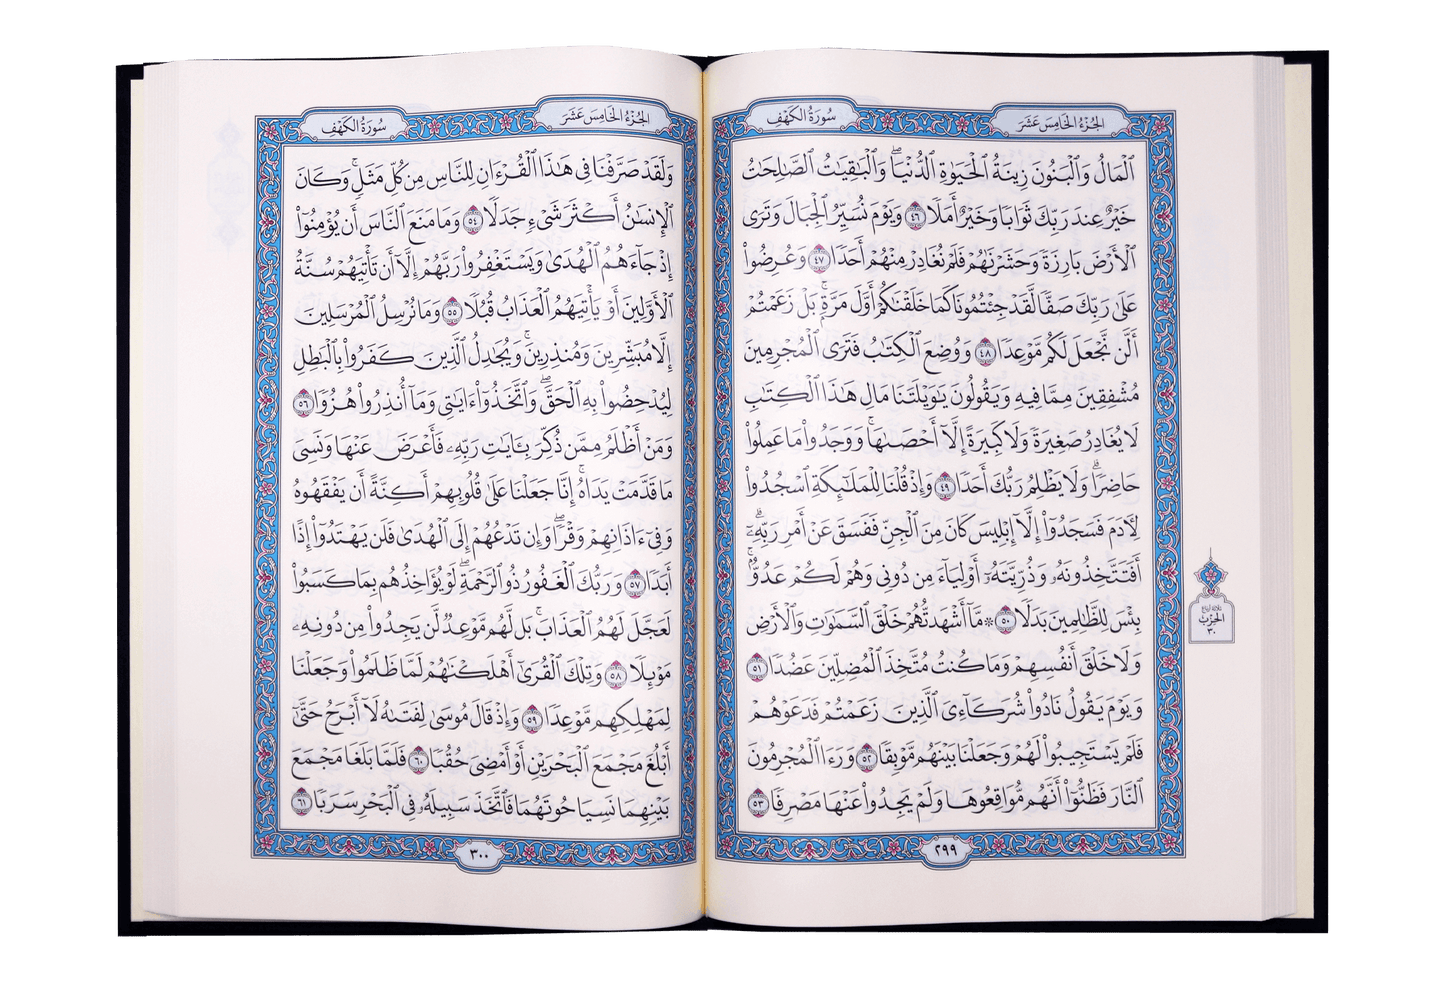 الجزء الخامس عشر
سورة الكهف
ٱلْمَالُ وَٱلْبَنُونَ زِينَةُ ٱلْحَيَوٰةِ ٱلدُّنْيَاۖ وَٱلْبَٰقِيَٰتُ ٱلصَّٰلِحَٰتُ
خَيْرٌ عِندَ رَبِّكَ ثَوَابًا وَخَيْرٌ أَمَلًا ٤٦ وَيَوْمَ نُسَيِّرُ ٱلْجِبَالَ وَتَرَى
ٱلْأَرْضَ بَارِزَةً وَحَشَرْنَٰهُمْ فَلَمْ نُغَادِرْ مِنْهُمْ أَحَدًا ٤٧ وَعُرِضُوا۟
عَلَىٰ رَبِّكَ صَفًّا لَّقَدْ جِئْتُمُونَا كَمَا خَلَقْنَٰكُمْ أَوَّلَ مَرَّةٍۭۚ بَلْ زَعَمْتُمْ
أَلَّن نَّجْعَلَ لَكُم مَّوْعِدًا ٤٨ وَوُضِعَ ٱلْكِتَٰبُ فَتَرَى ٱلْمُجْرِمِينَ
مُشْفِقِينَ مِمَّا فِيهِ وَيَقُولُونَ يَٰوَيْلَتَنَا مَالِ هَٰذَا ٱلْكِتَٰبِ
لَا يُغَادِرُ صَغِيرَةً وَلَا كَبِيرَةً إِلَّآ أَحْصَىٰهَاۚ وَوَجَدُوا۟ مَا عَمِلُوا۟
حَاضِرًاۗ وَلَا يَظْلِمُ رَبُّكَ أَحَدًا ٤٩ وَإِذْ قُلْنَا لِلْمَلَٰٓئِكَةِ ٱسْجُدُوا۟
لِءَادَمَ فَسَجَدُوٓا۟ إِلَّآ إِبْلِيسَ كَانَ مِنَ ٱلْجِنِّ فَفَسَقَ عَنْ أَمْرِ رَبِّهِۦٓۗ
أَفَتَتَّخِذُونَهُۥ وَذُرِّيَّتَهُۥٓ أَوْلِيَآءَ مِن دُونِى وَهُمْ لَكُمْ عَدُوٌّۢۚ
بِئْسَ لِلظَّٰلِمِينَ بَدَلًا ٥٠ ۞ مَّآ أَشْهَدتُّهُمْ خَلْقَ ٱلسَّمَٰوَٰتِ وَٱلْأَرْضِ
وَلَا خَلْقَ أَنفُسِهِمْ وَمَا كُنتُ مُتَّخِذَ ٱلْمُضِلِّينَ عَضُدًا ٥١
وَيَوْمَ يَقُولُ نَادُوا۟ شُرَكَآءِىَ ٱلَّذِينَ زَعَمْتُمْ فَدَعَوْهُمْ
فَلَمْ يَسْتَجِيبُوا۟ لَهُمْ وَجَعَلْنَا بَيْنَهُم مَّوْبِقًا ٥٢ وَرَءَا ٱلْمُجْرِمُونَ
ٱلنَّارَ فَظَنُّوٓا۟ أَنَّهُم مُّوَاقِعُوهَا وَلَمْ يَجِدُوا۟ عَنْهَا مَصْرِفًا ٥٣
٢٩٩
ثلاثة أرباع
الحزب
٣٠
الجزء الخامس عشر
سورة الكهف
وَلَقَدْ صَرَّفْنَا فِى هَٰذَا ٱلْقُرْءَانِ لِلنَّاسِ مِن كُلِّ مَثَلٍۚ وَكَانَ
ٱلْإِنسَٰنُ أَكْثَرَ شَىْءٍ جَدَلًا ٥٤ وَمَا مَنَعَ ٱلنَّاسَ أَن يُؤْمِنُوٓا۟
إِذْ جَآءَهُمُ ٱلْهُدَىٰ وَيَسْتَغْفِرُوا۟ رَبَّهُمْ إِلَّآ أَن تَأْتِيَهُمْ سُنَّةُ
ٱلْأَوَّلِينَ أَوْ يَأْتِيَهُمُ ٱلْعَذَابُ قُبُلًا ٥٥ وَمَا نُرْسِلُ ٱلْمُرْسَلِينَ
إِلَّا مُبَشِّرِينَ وَمُنذِرِينَۚ وَيُجَٰدِلُ ٱلَّذِينَ كَفَرُوا۟ بِٱلْبَٰطِلِ
لِيُدْحِضُوا۟ بِهِ ٱلْحَقَّۖ وَٱتَّخَذُوٓا۟ ءَايَٰتِى وَمَآ أُنذِرُوا۟ هُزُوًا ٥٦
وَمَنْ أَظْلَمُ مِمَّن ذُكِّرَ بِـَٔايَٰتِ رَبِّهِۦ فَأَعْرَضَ عَنْهَا وَنَسِىَ
مَا قَدَّمَتْ يَدَاهُۚ إِنَّا جَعَلْنَا عَلَىٰ قُلُوبِهِمْ أَكِنَّةً أَن يَفْقَهُوهُ
وَفِىٓ ءَاذَانِهِمْ وَقْرًاۖ وَإِن تَدْعُهُمْ إِلَى ٱلْهُدَىٰ فَلَن يَهْتَدُوٓا۟ إِذًا
أَبَدًا ٥٧ وَرَبُّكَ ٱلْغَفُورُ ذُو ٱلرَّحْمَةِۖ لَوْ يُؤَاخِذُهُم بِمَا كَسَبُوا۟
لَعَجَّلَ لَهُمُ ٱلْعَذَابَۚ بَل لَّهُم مَّوْعِدٌ لَّن يَجِدُوا۟ مِن دُونِهِۦ
مَوْئِلًا ٥٨ وَتِلْكَ ٱلْقُرَىٰٓ أَهْلَكْنَٰهُمْ لَمَّا ظَلَمُوا۟ وَجَعَلْنَا
لِمَهْلِكِهِم مَّوْعِدًا ٥٩ وَإِذْ قَالَ مُوسَىٰ لِفَتَىٰهُ لَآ أَبْرَحُ حَتَّىٰٓ
أَبْلُغَ مَجْمَعَ ٱلْبَحْرَيْنِ أَوْ أَمْضِىَ حُقُبًا ٦٠ فَلَمَّا بَلَغَا مَجْمَعَ
بَيْنِهِمَا نَسِيَا حُوتَهُمَا فَٱتَّخَذَ سَبِيلَهُۥ فِى ٱلْبَحْرِ سَرَبًا ٦١
٣٠٠